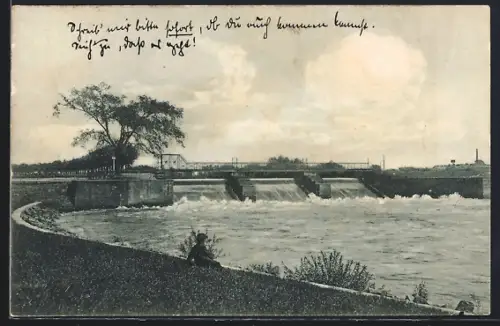 Schreib' mir bitte sofort, ob du auch kommen kannst.
zu, dass es geht!